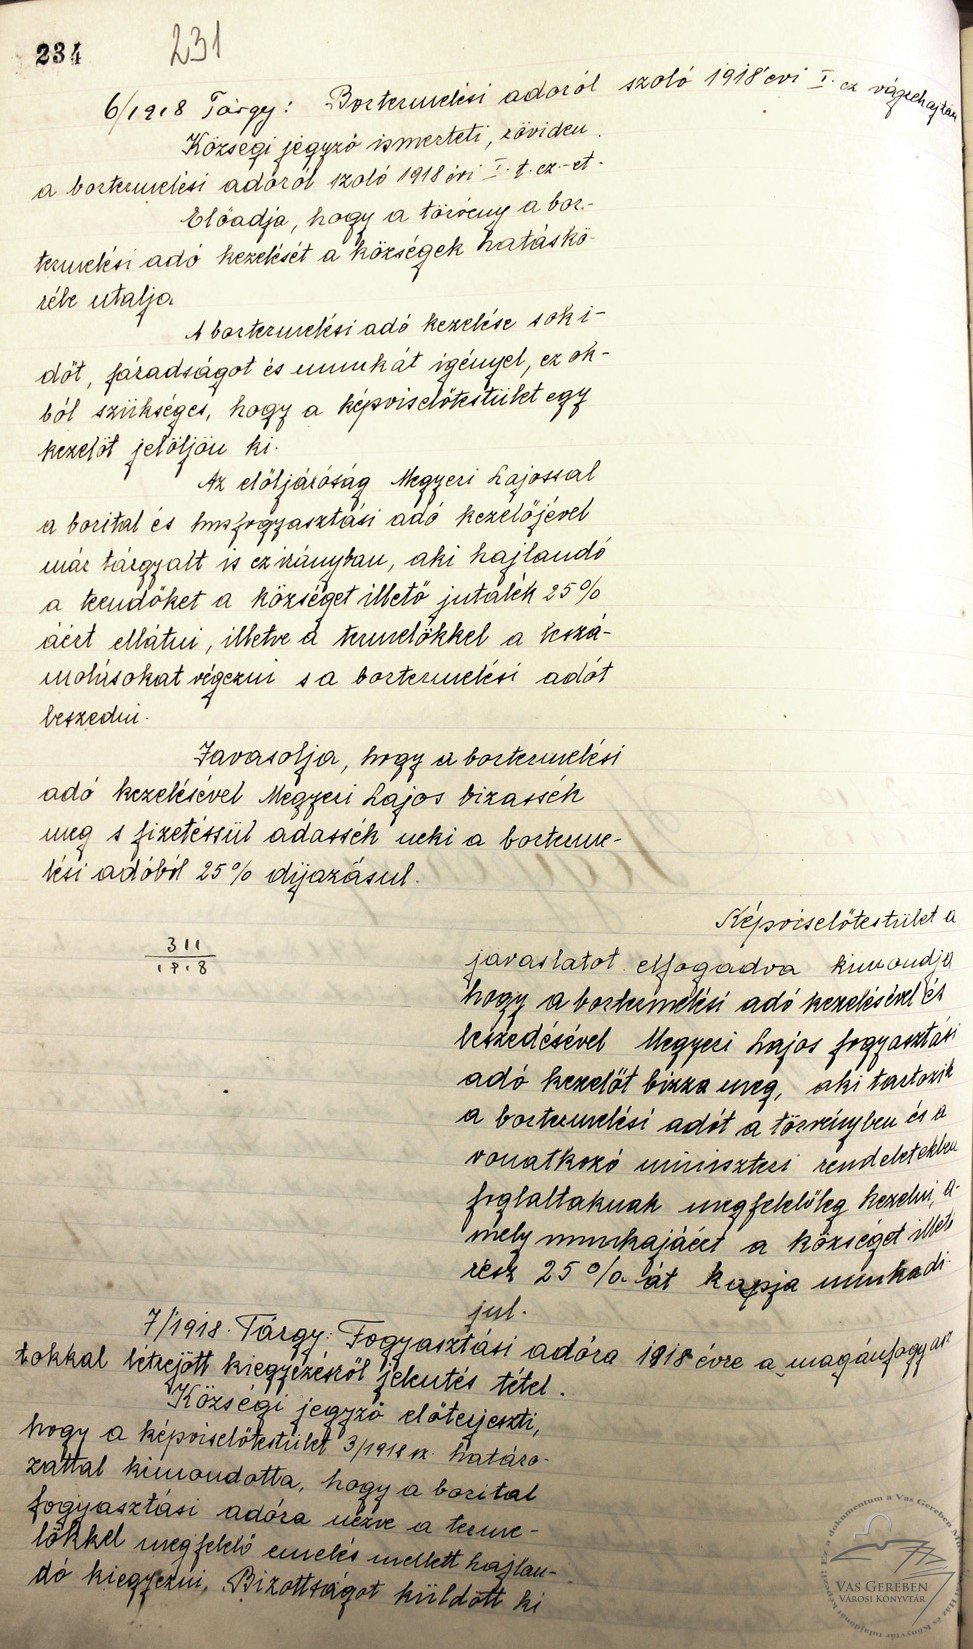 234 231
6/1918 Tárgy: Bortermelési adóról szoló 1918 évi I. cz végrehajtása
Községi jegyző ismerteti, röviden
a bortermelési adóról szoló 1918 évi I. t. cz.-et.
Előadja, hogy a törvény a bor-
termelési adó kezelését a községek hatáskö-
rébe utalja
A bortermelési adó kezelése sok i-
dőt, fáradságot és munkát igényel, ez ok-
ból szükséges, hogy a képviselőtestület egy
kezelőt jelöljön ki.
Az előljáróság Megyeri Lajossal
a borital és husfogyasztási adó kezelőjével
már tárgyalt is ez irányban, aki hajlandó
a teendőket a községet illető jutalék 25%
áért ellátni, illetve a termelőkkel a leszá-
molásokat végezni s a bortermelési adót
beszedni.
Javasolja, hogy a bortermelési
adó kezelésével Megyeri Lajos bizassék
meg s fizetéssül adassék neki a borterme-
lési adóból 25% dijazásul.
Képviselőtestület a
311
1918
javaslatot elfogadva kimondja
hogy a bortermelési adó kezelésével és
beszedésével Megyeri Lajos fogyasztási
adó kezelőt bizza meg, aki tartozik
a bortermelési adót a törvényben és a
vonatkozó miniszteri rendeletekben
foglaltaknak megfelelőleg kezelni, a-
mely munkájáért a községet illető
rész 25%-át kapja munkadi-
jul.
7/1918. Tárgy: Fogyasztási adóra 1918 évre a magánfogyasz
tokkal létrejött kiegyezésről jelentés tétel.
Községi jegyző előterjeszti,
hogy a képviselőtestület 3/1918 sz. határo-
zattal kimondotta, hogy a borital
fogyasztási adóra nézve a terme-
lőkkel megfelelő emelés mellett hajlan-
dó kiegyezni, Bizottságot küldött ki
VAS GEREBEN
VÁROSI KÖNYVTÁR